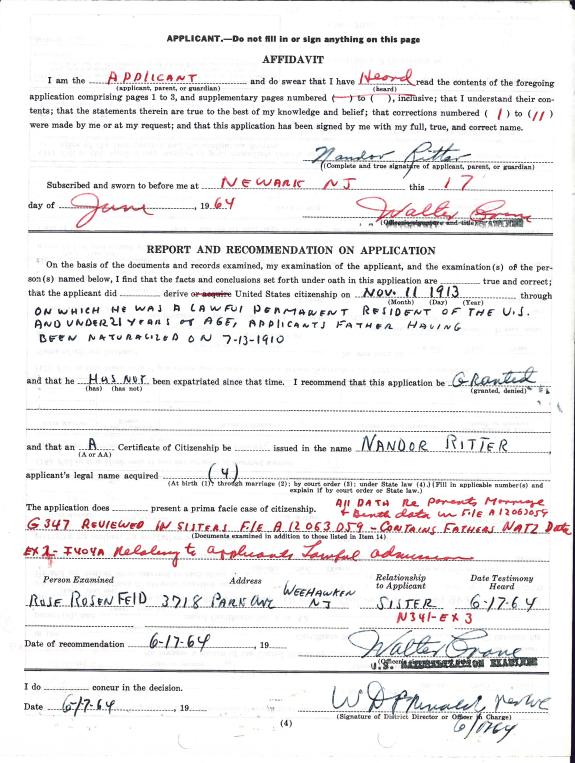 APPLICANT.—Do not fill in or sign anything on this page
AFFIDAVIT
I am the APPLICANT and do swear that I have Heard read the contents of the foregoing
(applicant, parent, or guardian) (heard)
application comprising pages 1 to 3, and supplementary pages numbered (—) to ( ), inclusive; that I understand the con-
tents; that the statements therein are true to the best of my knowledge and belief; that corrections numbered ( 1 ) to (11)
were made by me or at my request; and that this application has been signed by me with my full, true, and correct name.
Nandor Ritter
(Complete and true signature of applicant, parent, or guardian)
Subscribed and sworn to before me at NEWARK NJ this 17
day of June, 1964 Walter Crane
(Officer's signature and title)
REPORT AND RECOMMENDATION ON APPLICATION
On the basis of the documents and records examined, my examination of the applicant, and the examination(s) of the per-
son(s) named below, I find that the facts and conclusions set forth under oath in this application are true and correct;
that the applicant did derive or acquire United States citizenship on NOV. 11 1913 through
(Month) (Day) (Year)
ON WHICH HE WAS A LAWFUL PERMANENT RESIDENT OF THE U.S.
AND UNDER 21 YEARS OF AGE, APPLICANTS FATHER HAVING
BEEN NATURALIZED ON 7-13-1910
and that he HAS NOT been expatriated since that time. I recommend that this application be Granted
(has) (has not) (granted, denied)
and that an A Certificate of Citizenship be issued in the name NANDOR RITTER
(A or AA)
applicant's legal name acquired (4)
(At birth (1); through marriage (2); by court order (3); under State law (4).) (Fill in applicable number(s) and
explain if by court order or State law.)
The application does present a prima facie case of citizenship. All DATA Re Parents Marriage
& Birth data in FILE A12063059
G347 REVIEWED IN SISTERS FILE A 12 063 059 - CONTAINS FATHERS NATZ Data
(Documents examined in addition to those listed in Item 14)
EX 2 - I404A Relating to applicants Lawful admission
Person Examined Address Relationship to Applicant Date Testimony Heard
ROSE ROSENFELD 3718 PARK AVE WEEHAWKEN NJ SISTER 6-17-64
N341-EX 3
Date of recommendation 6-17-64, 19 Walter Crane
U.S. NATURALIZATION EXAMINER
I do concur in the decision.
Date 6-17-64, 19
(Signature of District Director or Officer in Charge)
(4)